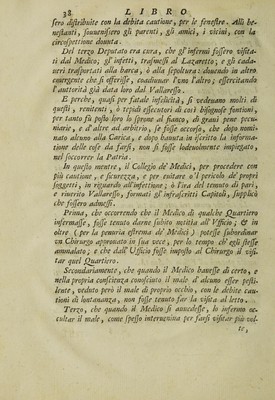 38 LIBRO
sero distribuite con la debita cautione, per le fenestre. Alli be-
nestanti, souuenissero gli parenti, gli amici, i vicini, con la
circuspettione douuta.
Del terzo Deputato era cura, che gl'infermi fossero visita-
ti dal Medico; gl'infetti, trasmessi al Lazaretto; e gli cada-
ueri trasportati alla barca, ò alla sepoltura: douendo in altro
emergente che si offerisse, coadiuuar l'uno l'altro; essercitando
l'auttorità già data loro dal Vallaresso.
E perche, quasi per fatale infelicità, si vedeuano molti di
questi, renitenti, ò tepidi essecutori di così bisognose funtioni,
per tanto fù posto loro lo sprone al fianco, di graui pene pecu-
niarie, e d'altre ad arbitrio, se fosse occorso, che dopo nomi-
nato alcuno alla Carica, e dopo hauuta in scritto la informa-
tione delle cose da farsi, non si fosse lodeuolmente impiegato,
nel soccorrer la Patria.
In questo mentre, il Collegio de' Medici, per procedere con
più cautione, e sicurezza, e per euitare o'l pericolo de' proprj
soggetti, in riguardo all'infettione; ò l'ira del tenuto di pari,
e riuerito Vallaresso, formati gl'infrascritti Capitoli, supplicò
che fossero admessi.
Prima, che occorrendo che il Medico di qualche Quartiero
infermasse, fosse tenuto darne subito notitia all'Vfficio; & in
oltre (per la penuria estrema de' Medici) potesse subordinar
vn Chirurgo approuato in sua vece, per lo tempo ch'egli stesse
ammalato; e che dall'Vfficio fosse imposto al Chirurgo il visi-
tar quel Quartiero.
Secondariamente, che quando il Medico hauesse di certo, e
nella propria conscienza conosciuto il male d'alcuno esser pesti-
lente, veduto però il male di proprio occhio, con le debite cau-
tioni di lontananza, non fosse tenuto far la visita al letto.
Terzo, che quando il Medico si auuedesse, lo infermo oc-
cultar il male, come spesso interueniua per farsi visitar più vol-
te,